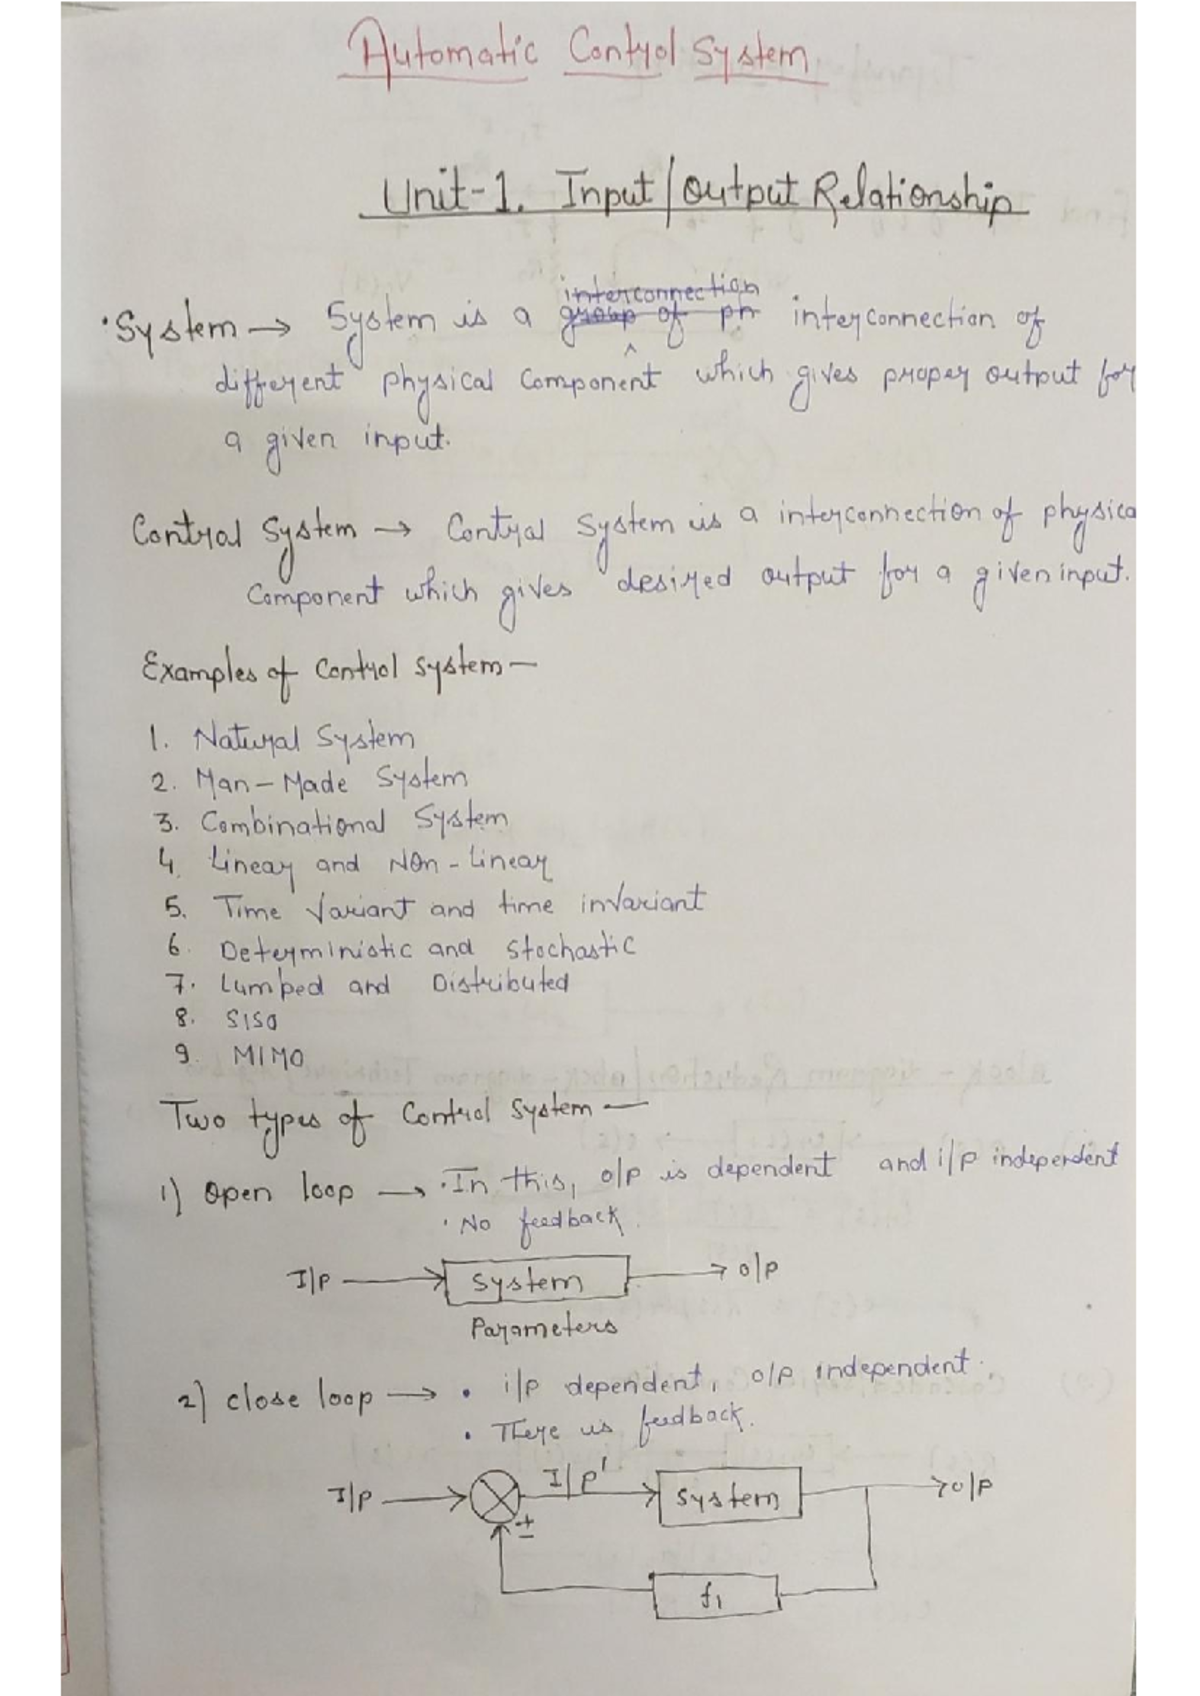 Automatic Control System
Unit-1. Input/Output Relationship
• System → System is a group of ph interconnection interconnection of
different physical Component which gives proper output for
a given input.
Control System → Control System is a interconnection of physica
Component which gives desired output for a given input.
Examples of Control system —
1. Natural System
2. Man-Made System
3. Combinational System
4. Linear and Non-Linear
5. Time Variant and time invariant
6. Deterministic and Stochastic
7. Lumped and Distributed
8. SISO
9. MIMO
Two types of Control System —
1) Open loop → • In this, o/p is dependent and i/p independent
• No feedback.
I/P System O/P
Parameters
2) close loop → • i/p dependent, o/p independent.
• There is feedback.
I/P I/P' System O/P
±
f1